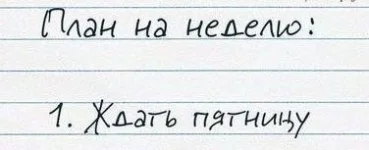 План на неделю:
1. Ждать пятницу